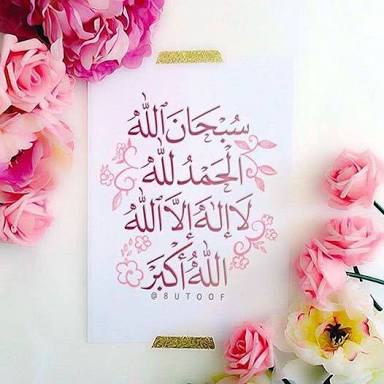 سُبْحَانَ ٱللَّه
الْحَمْدُ لِلَّه
لَا إِلَٰهَ إِلَّا ٱللَّه
اللَّهُ أَكْبَرْ
@8UTOOF